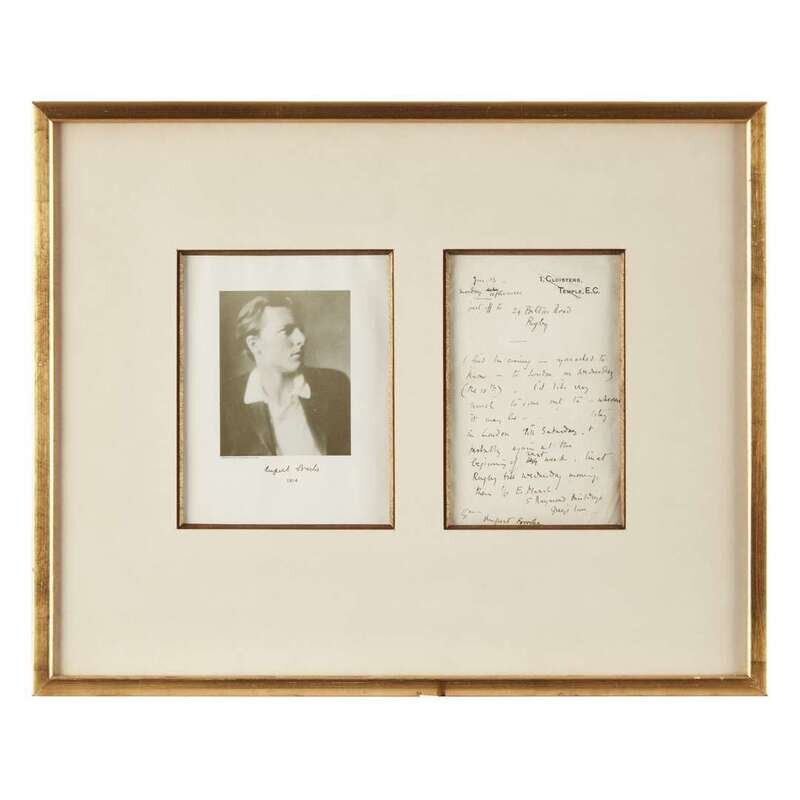 Rupert Brooke
1914
1, CLOISTERS,
TEMPLE, E.C.
Monday afternoon
24 Bilton Road
Rugby
I find I'm coming — you asked to
know — to London on Wednesday
(the 15th). I'd like very
much to come out to — wherever
it may be — . I stay
in London till Saturday, &
probably again at the
beginning of next week. I'm at
Rugby till Wednesday morning,
then c/o E. Marsh
5 Raymond Buildings
Gray's Inn
Rupert Brooke